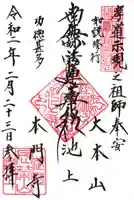 孝道示現之祖師奉安
大本山
池上
南無妙法蓮華経
和融修行
功徳甚多
本門寺
令和二年二月二十三日参拝